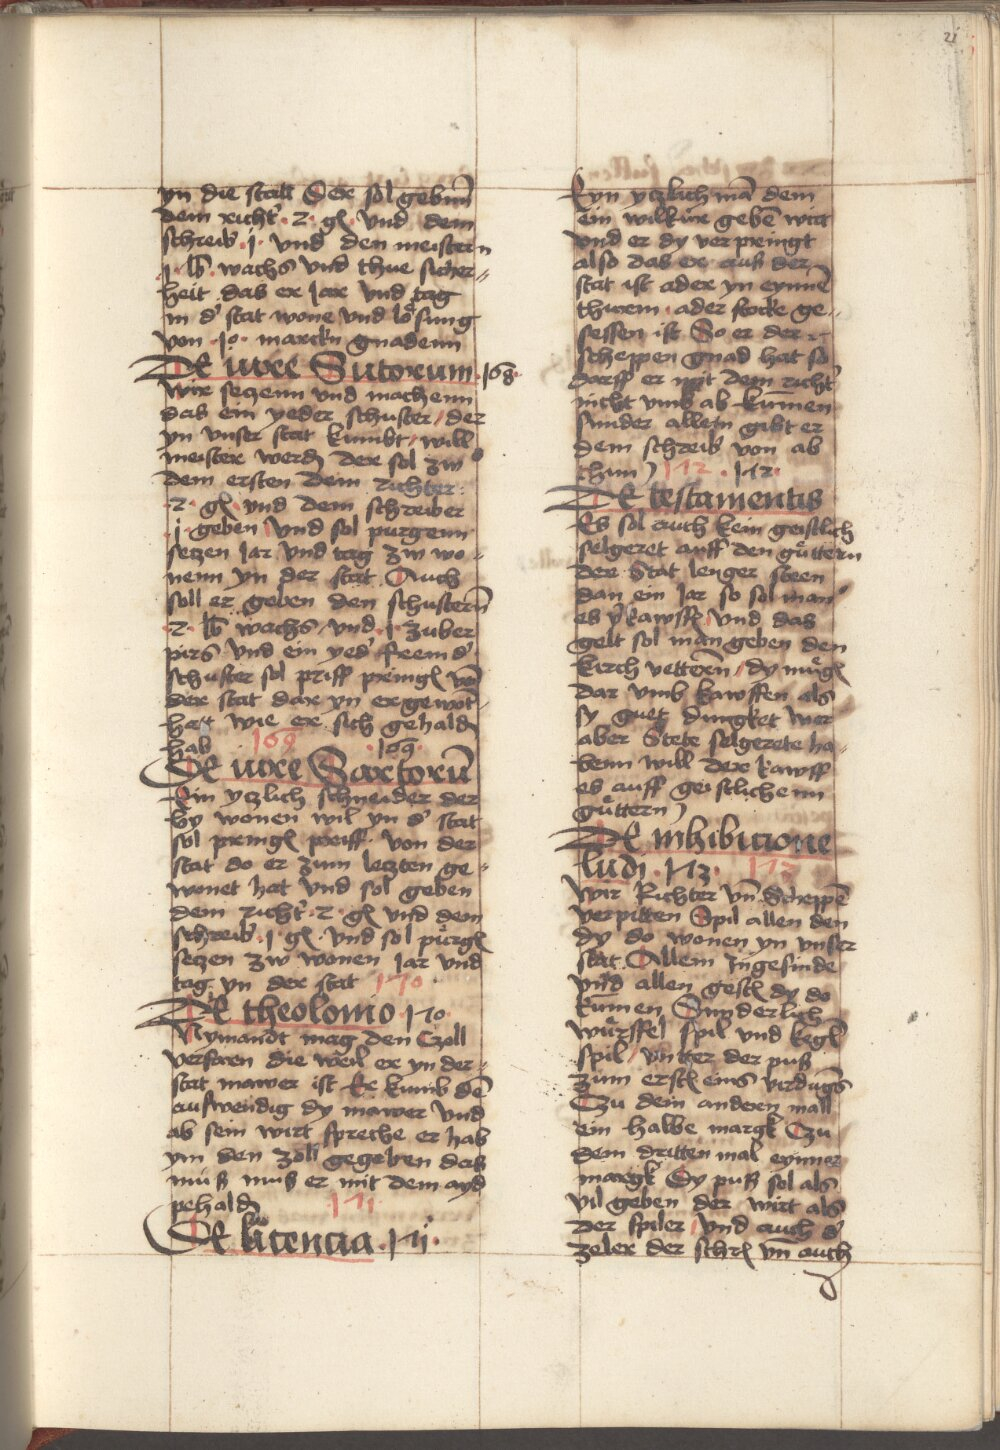 21
yn die statt Der sol gebnn
dem richt' . 2 . gl . vnd dem
schreib' . j . vnd den meistern
. j . lb wachs vnd thue sicher=
heit das er Jar vnd tag
in d' stat wone vnd losung
von . 10 . marckn gnadenn
De iure Sutorum . 168 .
Wir seczenn vnd machenn
das ein yeder schuster / der
yn vnser stat kumbt / will
meister werd der sol zw
dem ersten dem richter
. 2 . gl vnd dem schreiber
. j . geben vnd sol purgenn
seczen Jar vnd tag zw wo=
nenn yn der stat Auch
soll er geben den schustern
. 2 . lb wachs vnd . j . zuber
pirs vnd ein yed' fremd'
schuster sol priff pringl von
der stat dar yn er gewont
hatt wie er sich gehald
hab 169 . 169 .
De iure Sartoru
Ein yczlich schneider der
by wonen wil yn d' stat
sol pringl priff von der
stat do er zum letzten ge=
wonet hat vnd sol geben
dem richt' . 2 . gl vnd dem
schreib' . j . gl . vnd sol purgl
seczen zw wonen Jar vnd
tag yn der stat 170
De theolonio . 170 .
Nymandt mag den Czoll
verfaren die weil er yn der=
stat mawer ist Er kumb de
auswendig dy mawer vnd
ab sein wirt spreche er hab
ym den zoll gegeben das
mus er mit dem ayd
pehald 171
De licencia . 171 .
Eyn yczlich ma dem
ein wilkur gebe wirt
vnd er dy verpringt
also das er aus der
stat ist ader yn eynne
thurm . ader stocke ge=
sessen ist So er der
scheppen gnad hat so
darff er mit dem richt'
nicht vmb ab kumen
sunder allein gibt er
dem schreib' von ab
thun 172 . 172 .
De testamentis
Es sol auch kein geistlich
selgeret auff den guttern
der Stat lenger steen
dan ein Jar so sol man
es v'kawffl vnd das
gelt sol man geben den
kirch vettern / dy mugl
dar vmb kawffen als
sy guet dungket wer
aber Stete selgerete ha=
benn will der kawff
es auff geistlichenn
guttern
De inhibicione
ludi . 173 . 173
Wir Richter vn Scheppe
verpitten Spil allen den
dy do wonen yn vnser
stat . Allem Ingesinde
vnd allen gestl dy do
kumen Sunderlich
wurffel spil vnd kegl
spil / vntter der puss
zum erstl eins virdungs
Czu dem andern mall
ein halbe margk Czu
dem dritten mal eynner
margk Dy puss sol als
vil geben der wirt als
der spiler vnd auch d'
zeler der schrl vn auch